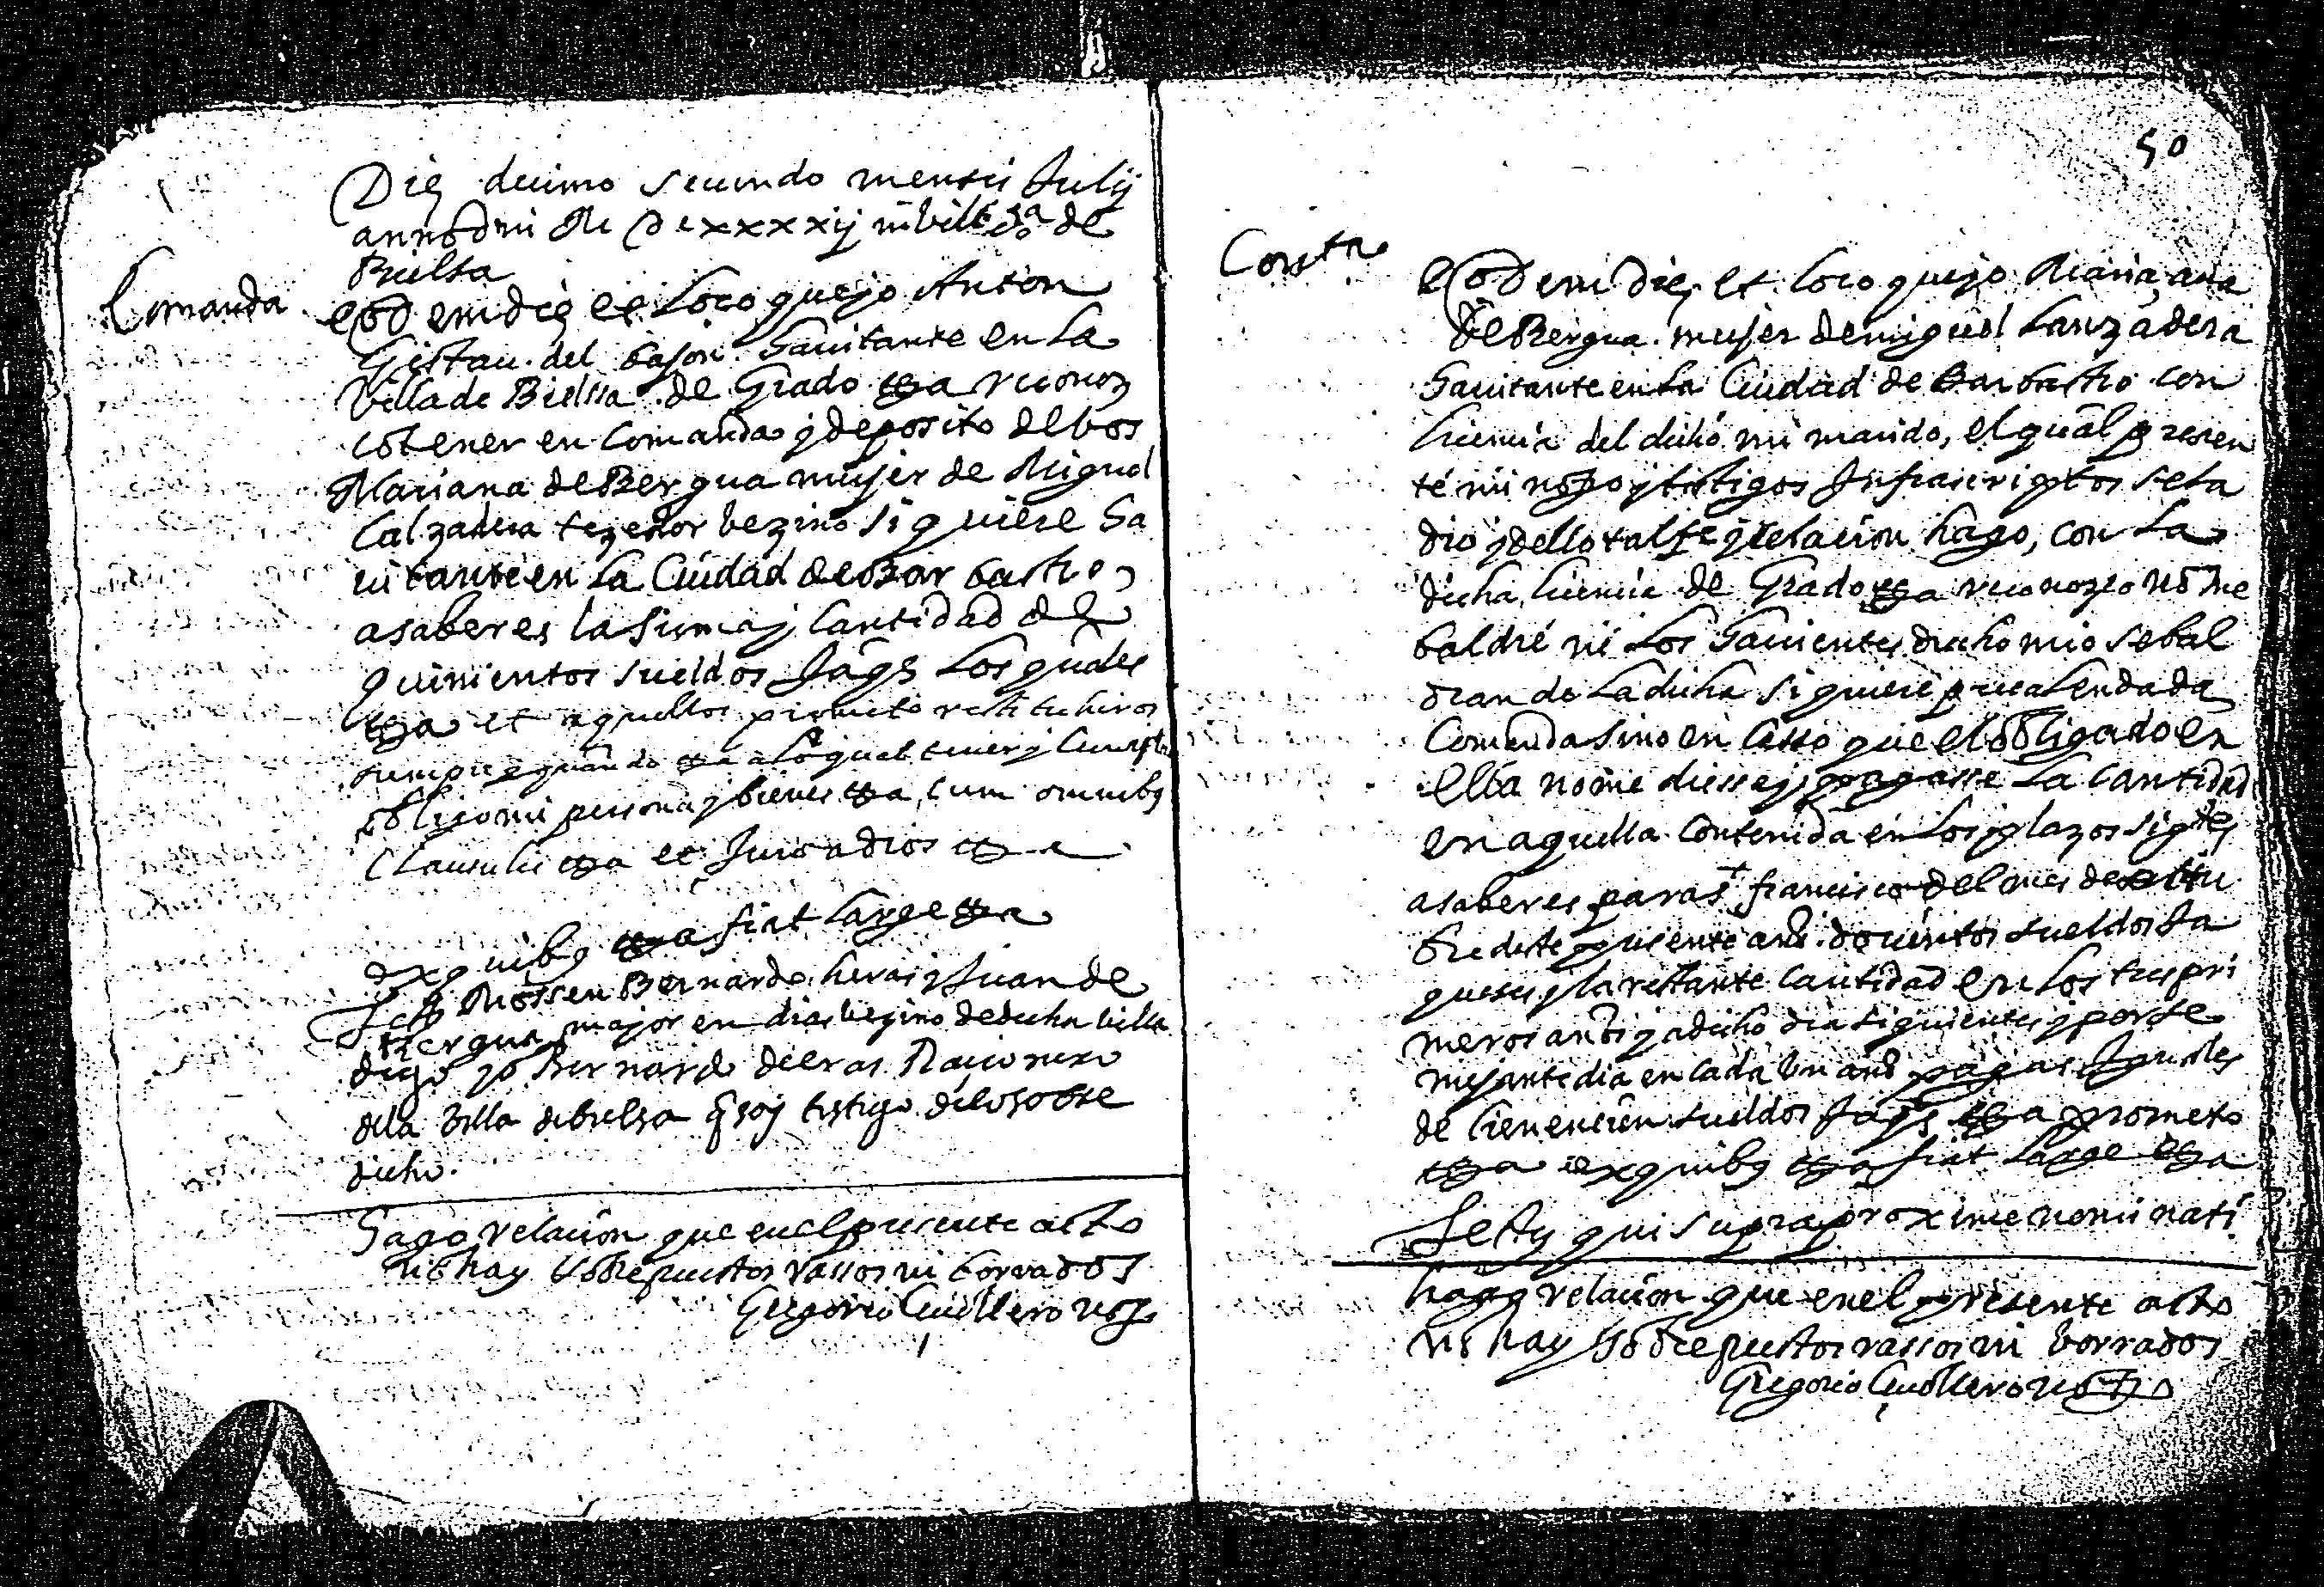 Die decimo secundo mensis Julij
anno dni M DCxxxxij in villa de
Bielsa
Comanda
Eodem die et loco que yo Anton
Gistau del bason hauitante en la
Villa de Bielssa de Grado etta reconoz
co tener en Comanda y deposito de bos
Mariana de Bergua mujer de Miguel
Calzadera texedor bezino siquiere ha
uitante en la Ciudad de Barbastro
a saber es la suma y Cantidad de
quinientos sueldos Jaqs los quales
etta et aquellos prometo restituhiros
siempre y quando etta a lo qual tener y Cumplir
obligo mi persona y bienes etta cum omnibs
Clausulis etta et Juro a dios etta
ex quibs etta fiat large etta
Ts Mossen Bernardo heras y Juan de
Bergua major en dias bezino de dicha billa
digo yo Bernardo de eras Racionero
dela Villa de bielsa q soy testigo de lo sobre
dicho.
Hago relacion que en el presente acto
no hay sobrepuestos rassos ni borrados
Gregorio Cuellero noto
50
Contra
Eodem die et loco que yo Mariana
de Bergua mujer de miguel Lanzadera
hauitante en la Ciudad de Barbastro con
licencia del dicho mi marido, el qual presen
te mi noto y testigos Infrascriptos se la
dio y dello tal fe y relacion hago, con la
dicha licencia de Grado etta reconozco no me
baldre ni los hauientes drecho mio se bal
dran de la dicha siquiere precalendada
Comanda sino en Casso que el obligado en
ella no me diesse y pagasse la Cantidad
en aquella Contenida en los plazos sigtes
a saber es para st francisco del mes de octu
bre deste presente año docientos sueldos Ja
queses y la restante Cantidad en los tres pri
meros años y a dicho dia siguientes y por se
mejante dia en cada un año pagas Iguales
de Cien en cien sueldos Jaqs etta prometo
etta ex quibs etta fiat large etta
Testes qui supra proxime nominati
hago relacion que en el presente acto
no hay sobrepuestos rassos ni borrados
Gregorio Cuellero noto